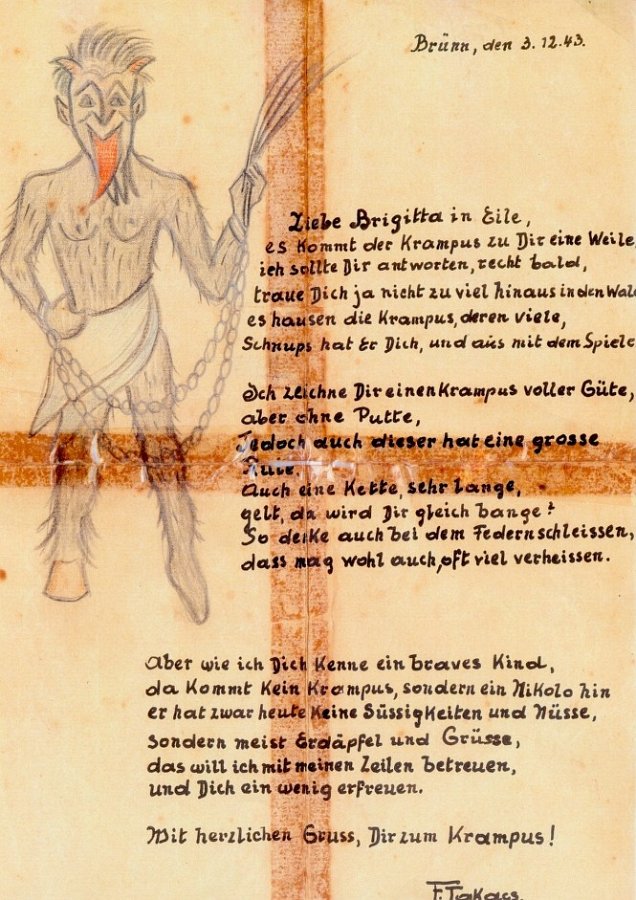 Brünn, den 3.12.43.
Liebe Brigitta in Eile,
es kommt der Krampus zu Dir eine Weile,
ich sollte Dir antworten, recht bald,
traue Dich ja nicht zu viel hinaus in den Wald
es hausen die Krampus, deren viele,
Schnups hat Er Dich, und aus mit dem Spiele
Ich zeichne Dir einen Krampus voller Güte,
aber ohne Putte,
Jedoch auch dieser hat eine grosse
Rute.
Auch eine Kette, sehr lange,
gelt, da wird Dir gleich bange?
So denke auch bei dem Federnschleissen,
dass mag wohl auch, oft viel verheissen.
Aber wie ich Dich kenne ein braves Kind,
da kommt kein Krampus, sondern ein Nikolo hin
er hat zwar heute keine Süssigkeiten und Nüsse,
sondern meist Erdäpfel und Grüsse,
das will ich mit meinen Zeilen betreuen,
und Dich ein wenig erfreuen.
Mit herzlichen Gruss, Dir zum Krampus!
F. Takacs.